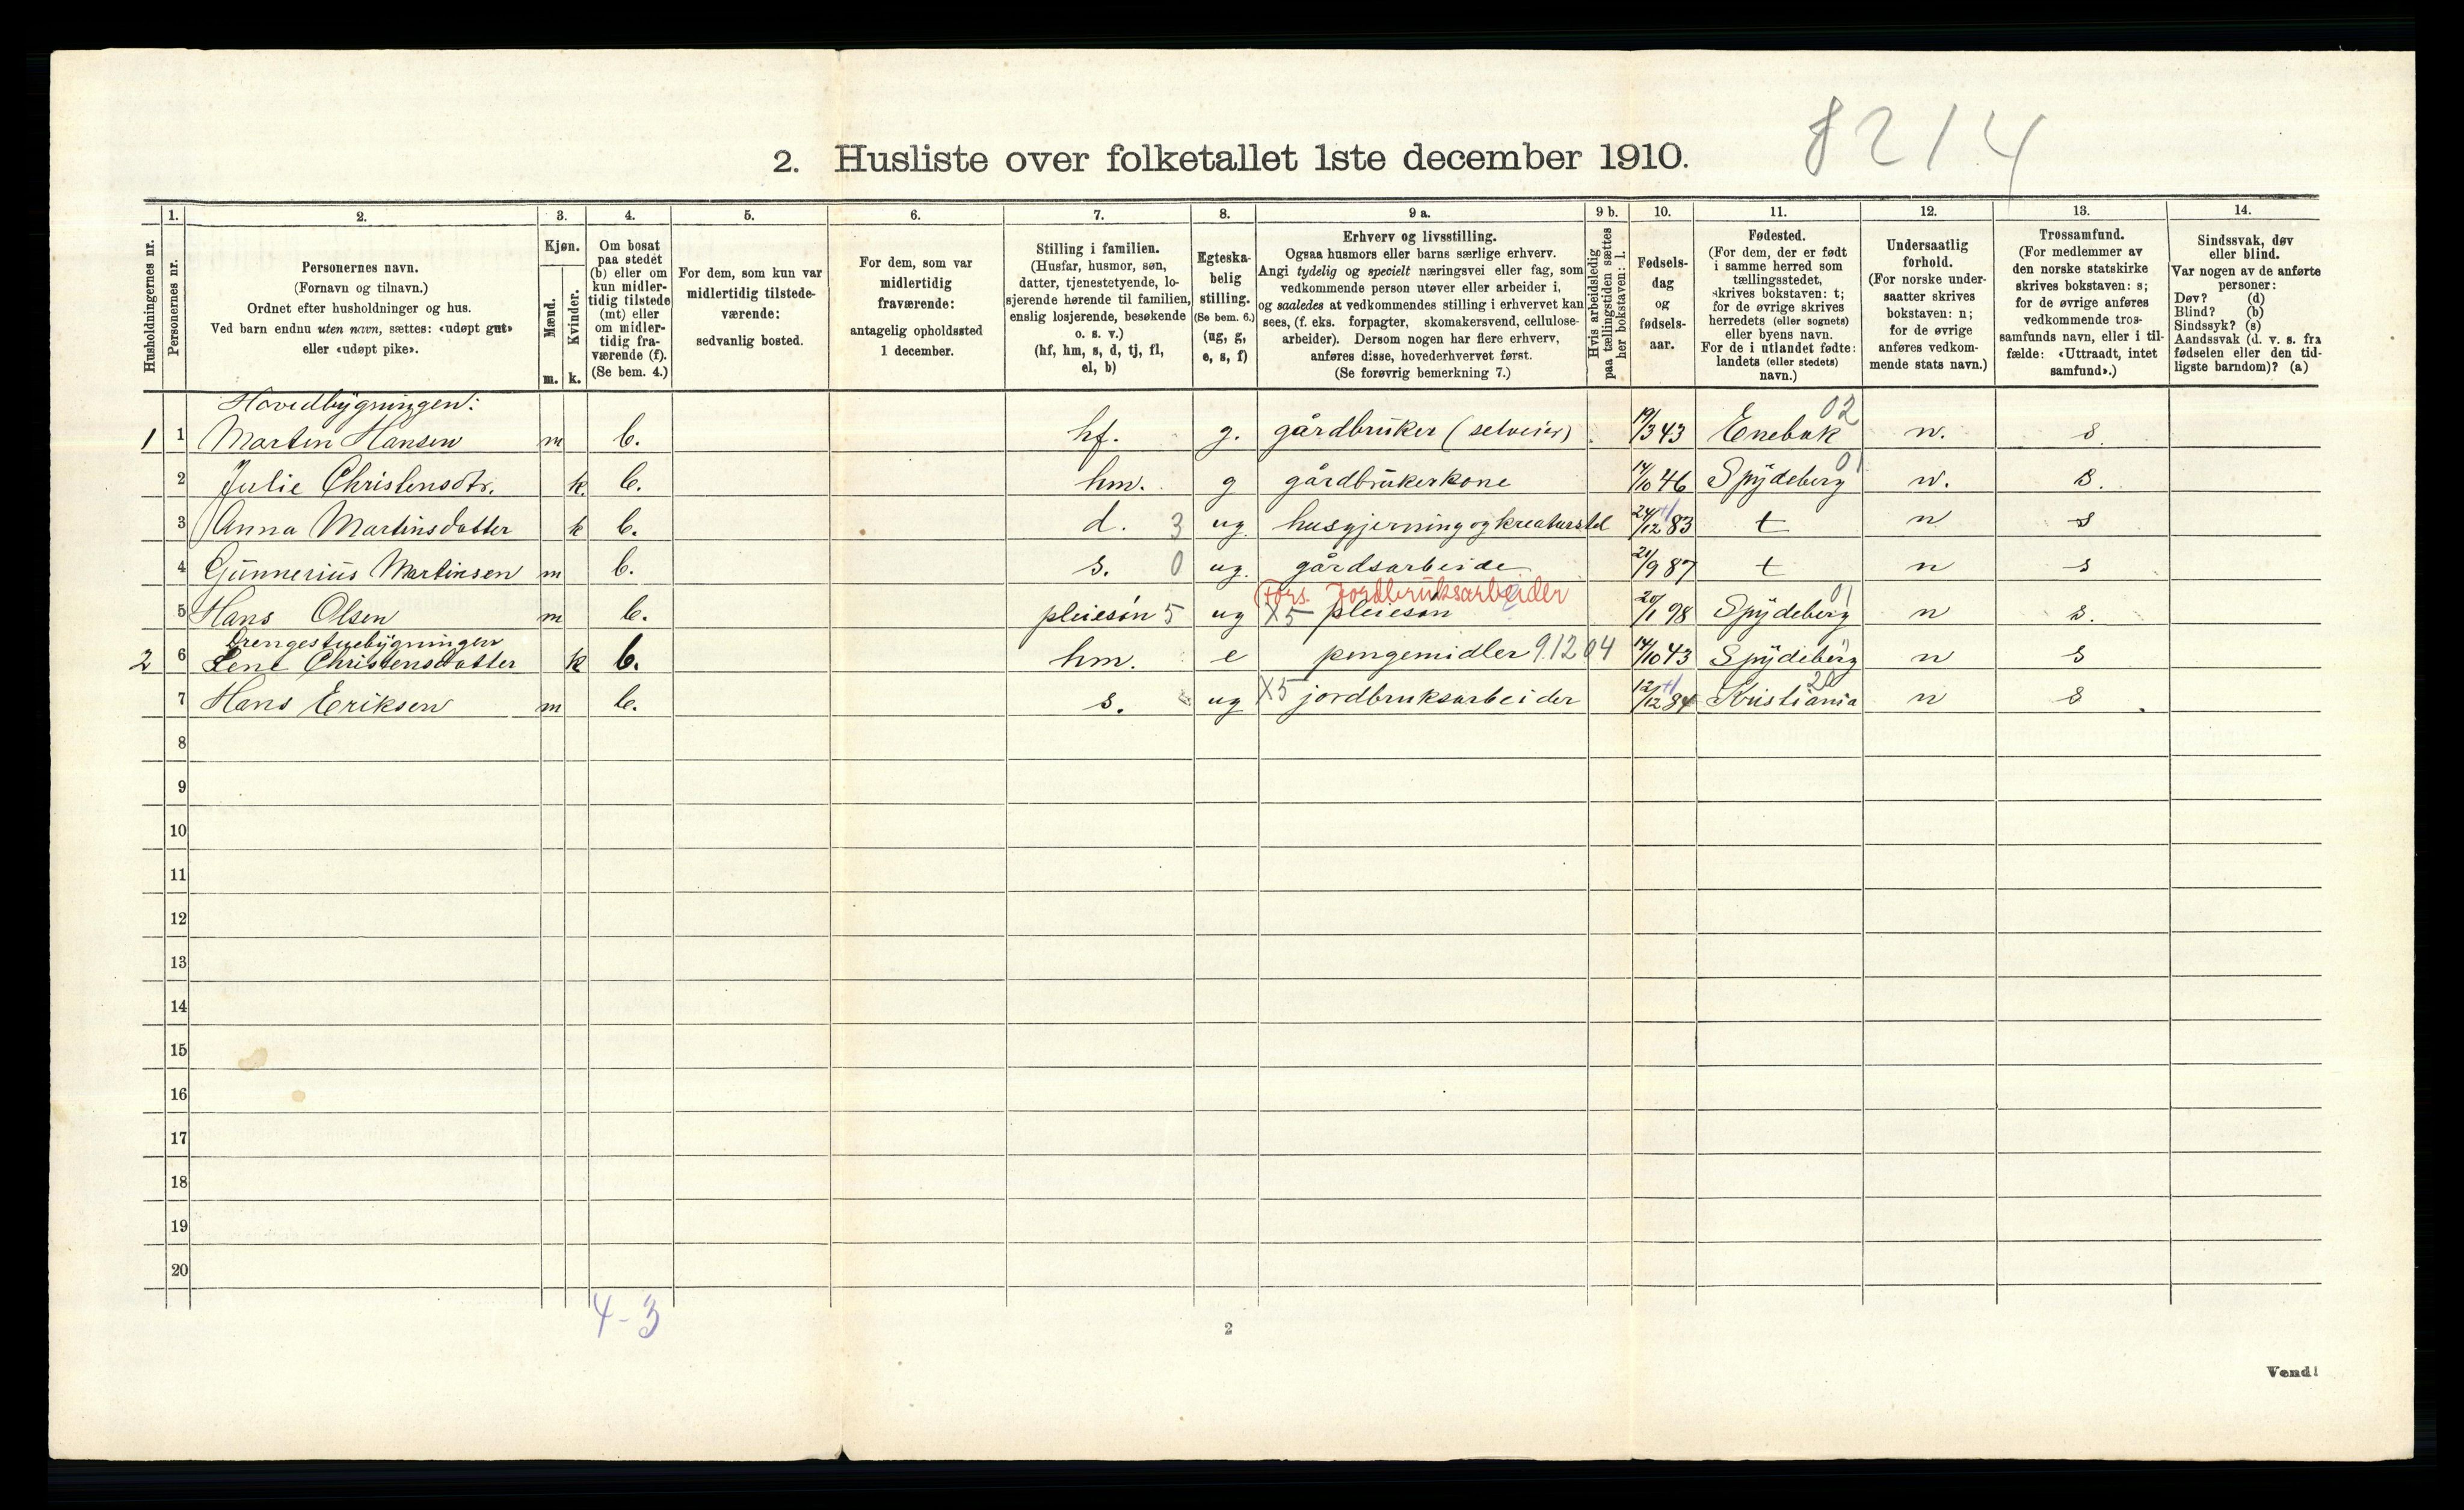 8214
2. Husliste over folketallet 1ste december 1910.
Husholdningernes nr.
1.
Personernes nr.
2.
Personernes navn.
(Fornavn og tilnavn.)
Ordnet efter husholdninger og hus.
Ved barn endnu uten navn, sættes: «udøpt gut»
eller «udøpt pike».
3.
Kjøn.
Mænd.
Kvinder.
m. k.
4.
Om bosat
paa stedet
(b) eller om
kun midler-
tidig tilstede
(mt) eller
om midler-
tidig fra-
værende (f).
(Se bem. 4.)
5.
For dem, som kun var
midlertidig tilstede-
værende:
sedvanlig bosted.
6.
For dem, som var
midlertidig
fraværende:
antagelig opholdssted
1 december.
7.
Stilling i familien.
(Husfar, husmor, søn,
datter, tjenestetyende, lo-
sjerende hørende til familien,
enslig losjerende, besøkende
o. s. v.)
(hf, hm, s, d, tj, fl,
el, b)
8.
Egteska-
belig
stilling.
(Se bem. 6.)
(ug, g,
e, s, f)
9 a.
Erhverv og livsstilling.
Ogsaa husmors eller barns særlige erhverv.
Angi tydelig og specielt næringsvei eller fag, som
vedkommende person utøver eller arbeider i,
og saaledes at vedkommendes stilling i erhvervet kan
sees, (f. eks. forpagter, skomakersvend, cellulose-
arbeider). Dersom nogen har flere erhverv,
anføres disse, hovederhvervet først.
(Se forøvrig bemerkning 7.)
9 b.
Hvis arbeidsledig
paa tællingstiden sættes
her bokstaven: l.
10.
Fødsels-
dag
og
fødsels-
aar.
11.
Fødested.
(For dem, der er født
i samme herred som
tællingsstedet,
skrives bokstaven: t;
for de øvrige skrives
herredets (eller sognets)
eller byens navn.
For de i utlandet fødte:
landets (eller stedets)
navn.)
12.
Undersaatlig
forhold.
(For norske under-
saatter skrives
bokstaven: n;
for de øvrige
anføres vedkom-
mende stats navn.)
13.
Trossamfund.
(For medlemmer av
den norske statskirke
skrives bokstaven: s;
for de øvrige anføres
vedkommende tros-
samfunds navn, eller i til-
fælde: «Uttraadt, intet
samfund».)
14.
Sindssvak, døv
eller blind.
Var nogen av de anførte
personer:
Døv? (d)
Blind? (b)
Sindssyk? (s)
Aandssvak (d. v. s. fra
fødselen eller den tid-
ligste barndom)? (a)
Hovedbygningen:
1 1 Martin Hansen m b. hf. g. gårdbruker (selveier) 19/3 43 Enebak 02 n. s.
2 Julie Christensdtr. k. b. hm. g gårdbrukerkone 14/10 46 Spydeberg 01 n. s.
3 Anna Martinsdatter k b. d. 3 ug. husgjerning og kreaturstel 24/12 83 +1 t n s
4 Gunnerius Martinsen m b. s. 0 ug. gårdsarbeide 21/9 87 t n s
Fors. Jordbruksarbeider
5 Hans Olsen m b. pleiesön 5 ug X5 pleiesön 20/1 98 Spydeberg 01 n s.
Drengestuebygningen
2 6 Lene Christensdatter k b. hm. e pengemidler 91204 14/10 43 Spydeberg n s
7 Hans Eriksen m b. s. ug X5 jordbruksarbeider 12/12 84 +1 Kristiania 20 n s
8
9
10
11
12
13
14
15
16
17
18
19
20
4-3
2
Vend!